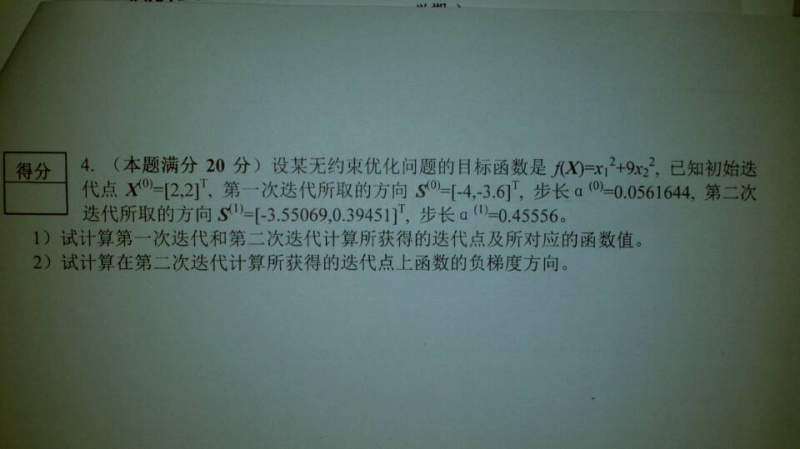 得分
4. （本题满分 20 分）设某无约束优化问题的目标函数是 f(X)=x₁²+9x₂², 已知初始迭
代点 X⁽⁰⁾=[2,2]ᵀ, 第一次迭代所取的方向 S⁽⁰⁾=[-4,-3.6]ᵀ, 步长α⁽⁰⁾=0.0561644, 第二次
迭代所取的方向 S⁽¹⁾=[-3.55069,0.39451]ᵀ, 步长α⁽¹⁾=0.45556。
1）试计算第一次迭代和第二次迭代计算所获得的迭代点及所对应的函数值。
2）试计算在第二次迭代计算所获得的迭代点上函数的负梯度方向。